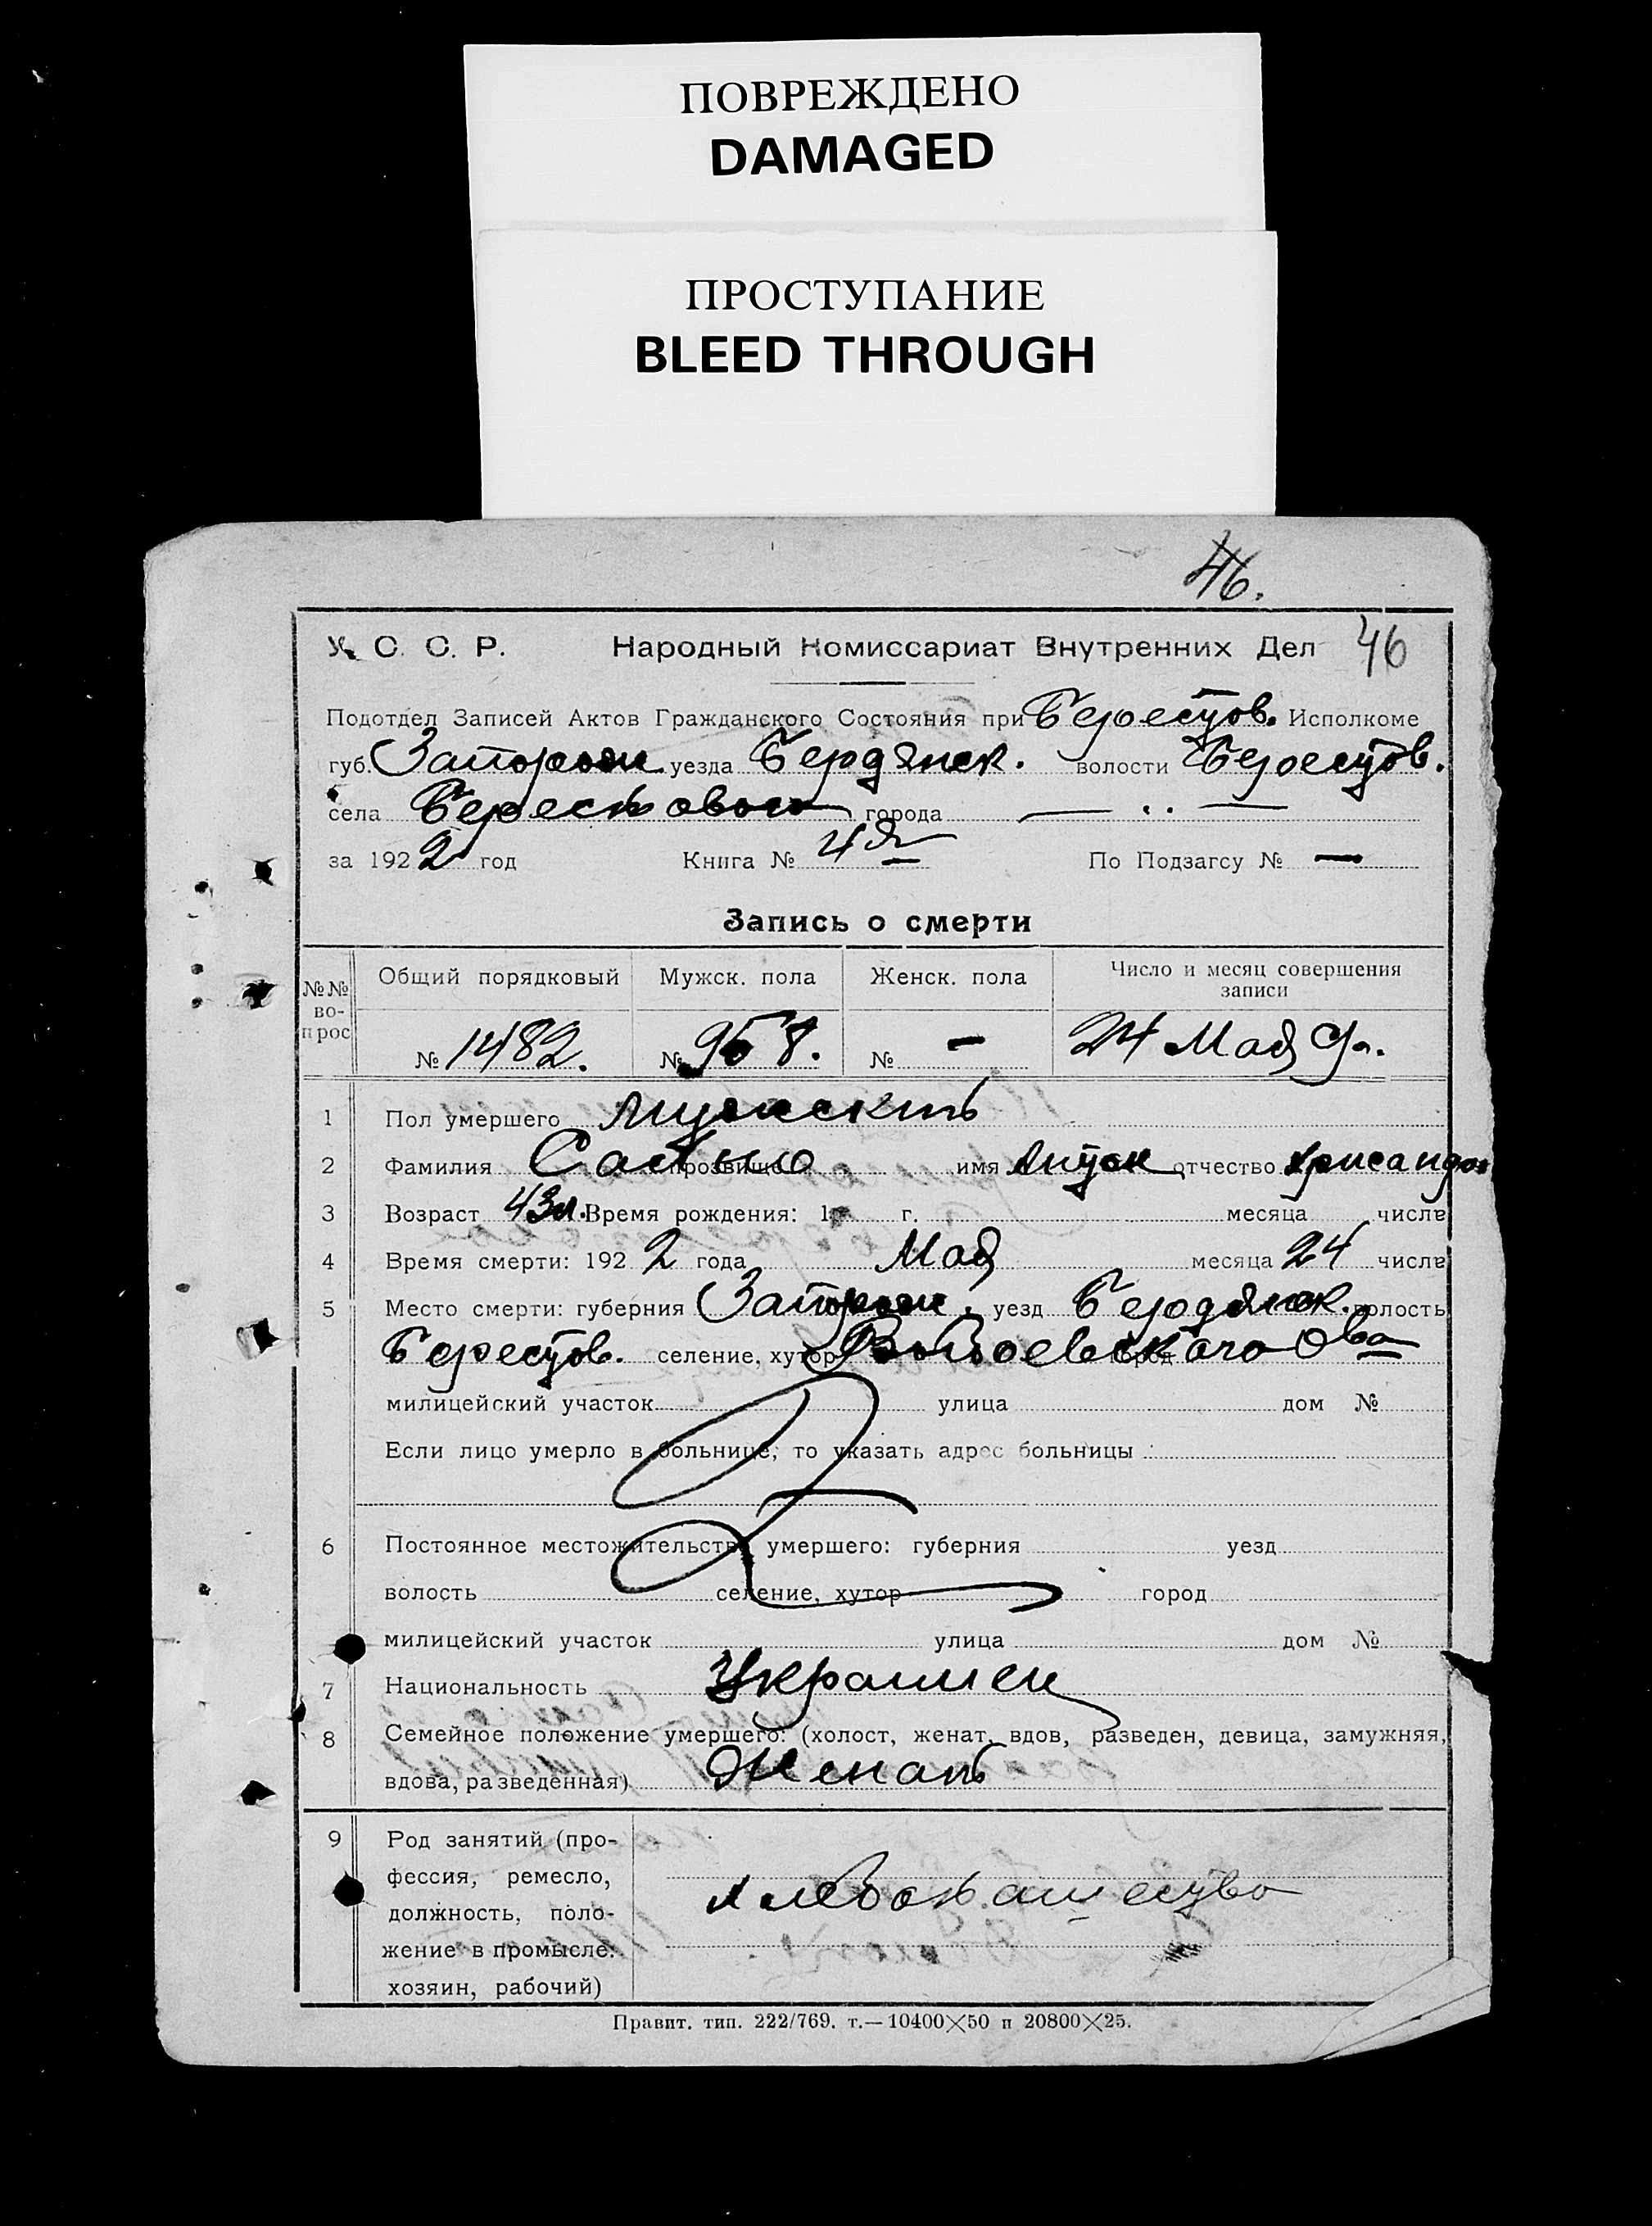 ПОВРЕЖДЕНО
DAMAGED
ПРОСТУПАНИЕ
BLEED THROUGH
46.
У. С. С. Р. Народный Комиссариат Внутренних Дел 46
Подотдел Записей Актов Гражданского Состояния при Берестов. Исполкоме
губ. Запорож. уезда Бердянск. волости Берестов.
села Берестового города — „ —
за 1922 год Книга № 4я По Подзагсу № —
Запись о смерти
№№ во-прос Общий порядковый Мужск. пола Женск. пола Число и месяц совершения записи
№ 1482. № 958. № — 24 Мая
1 Пол умершего мужскть
2 Фамилия прозвище имя отчество
3 Возраст 43 л. Время рождения: 1 г. месяца числа
4 Время смерти: 1922 года Мая месяца 24 числа
5 Место смерти: губерния Запорож. уезд Бердянск. волость
Берестов. селение, хутор город
милицейский участок улица дом №
Если лицо умерло в больнице, то указать адрес больницы
6 Постоянное местожительство умершего: губерния уезд
волость селение, хутор город
милицейский участок улица дом №
7 Национальность Украинец
8 Семейное положение умершего: (холост, женат, вдов, разведен, девица, замужняя,
вдова, разведенная) Женать
9 Род занятий (про-
фессия, ремесло,
должность, поло- хлебопашество
жение в промысле:
хозяин, рабочий)
Правит. тип. 222/769. т.—10400×50 п 20800×25.